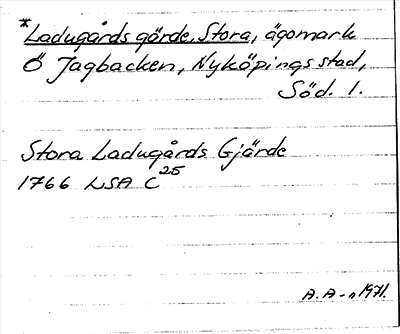 *Ladugårds gärde, Stora, ägomark
Ö Jagbacken, Nyköpings stad,
Söd. l.
Stora Ladugårds Gjärde
1766 LSA C 25
A.A-n 1971.